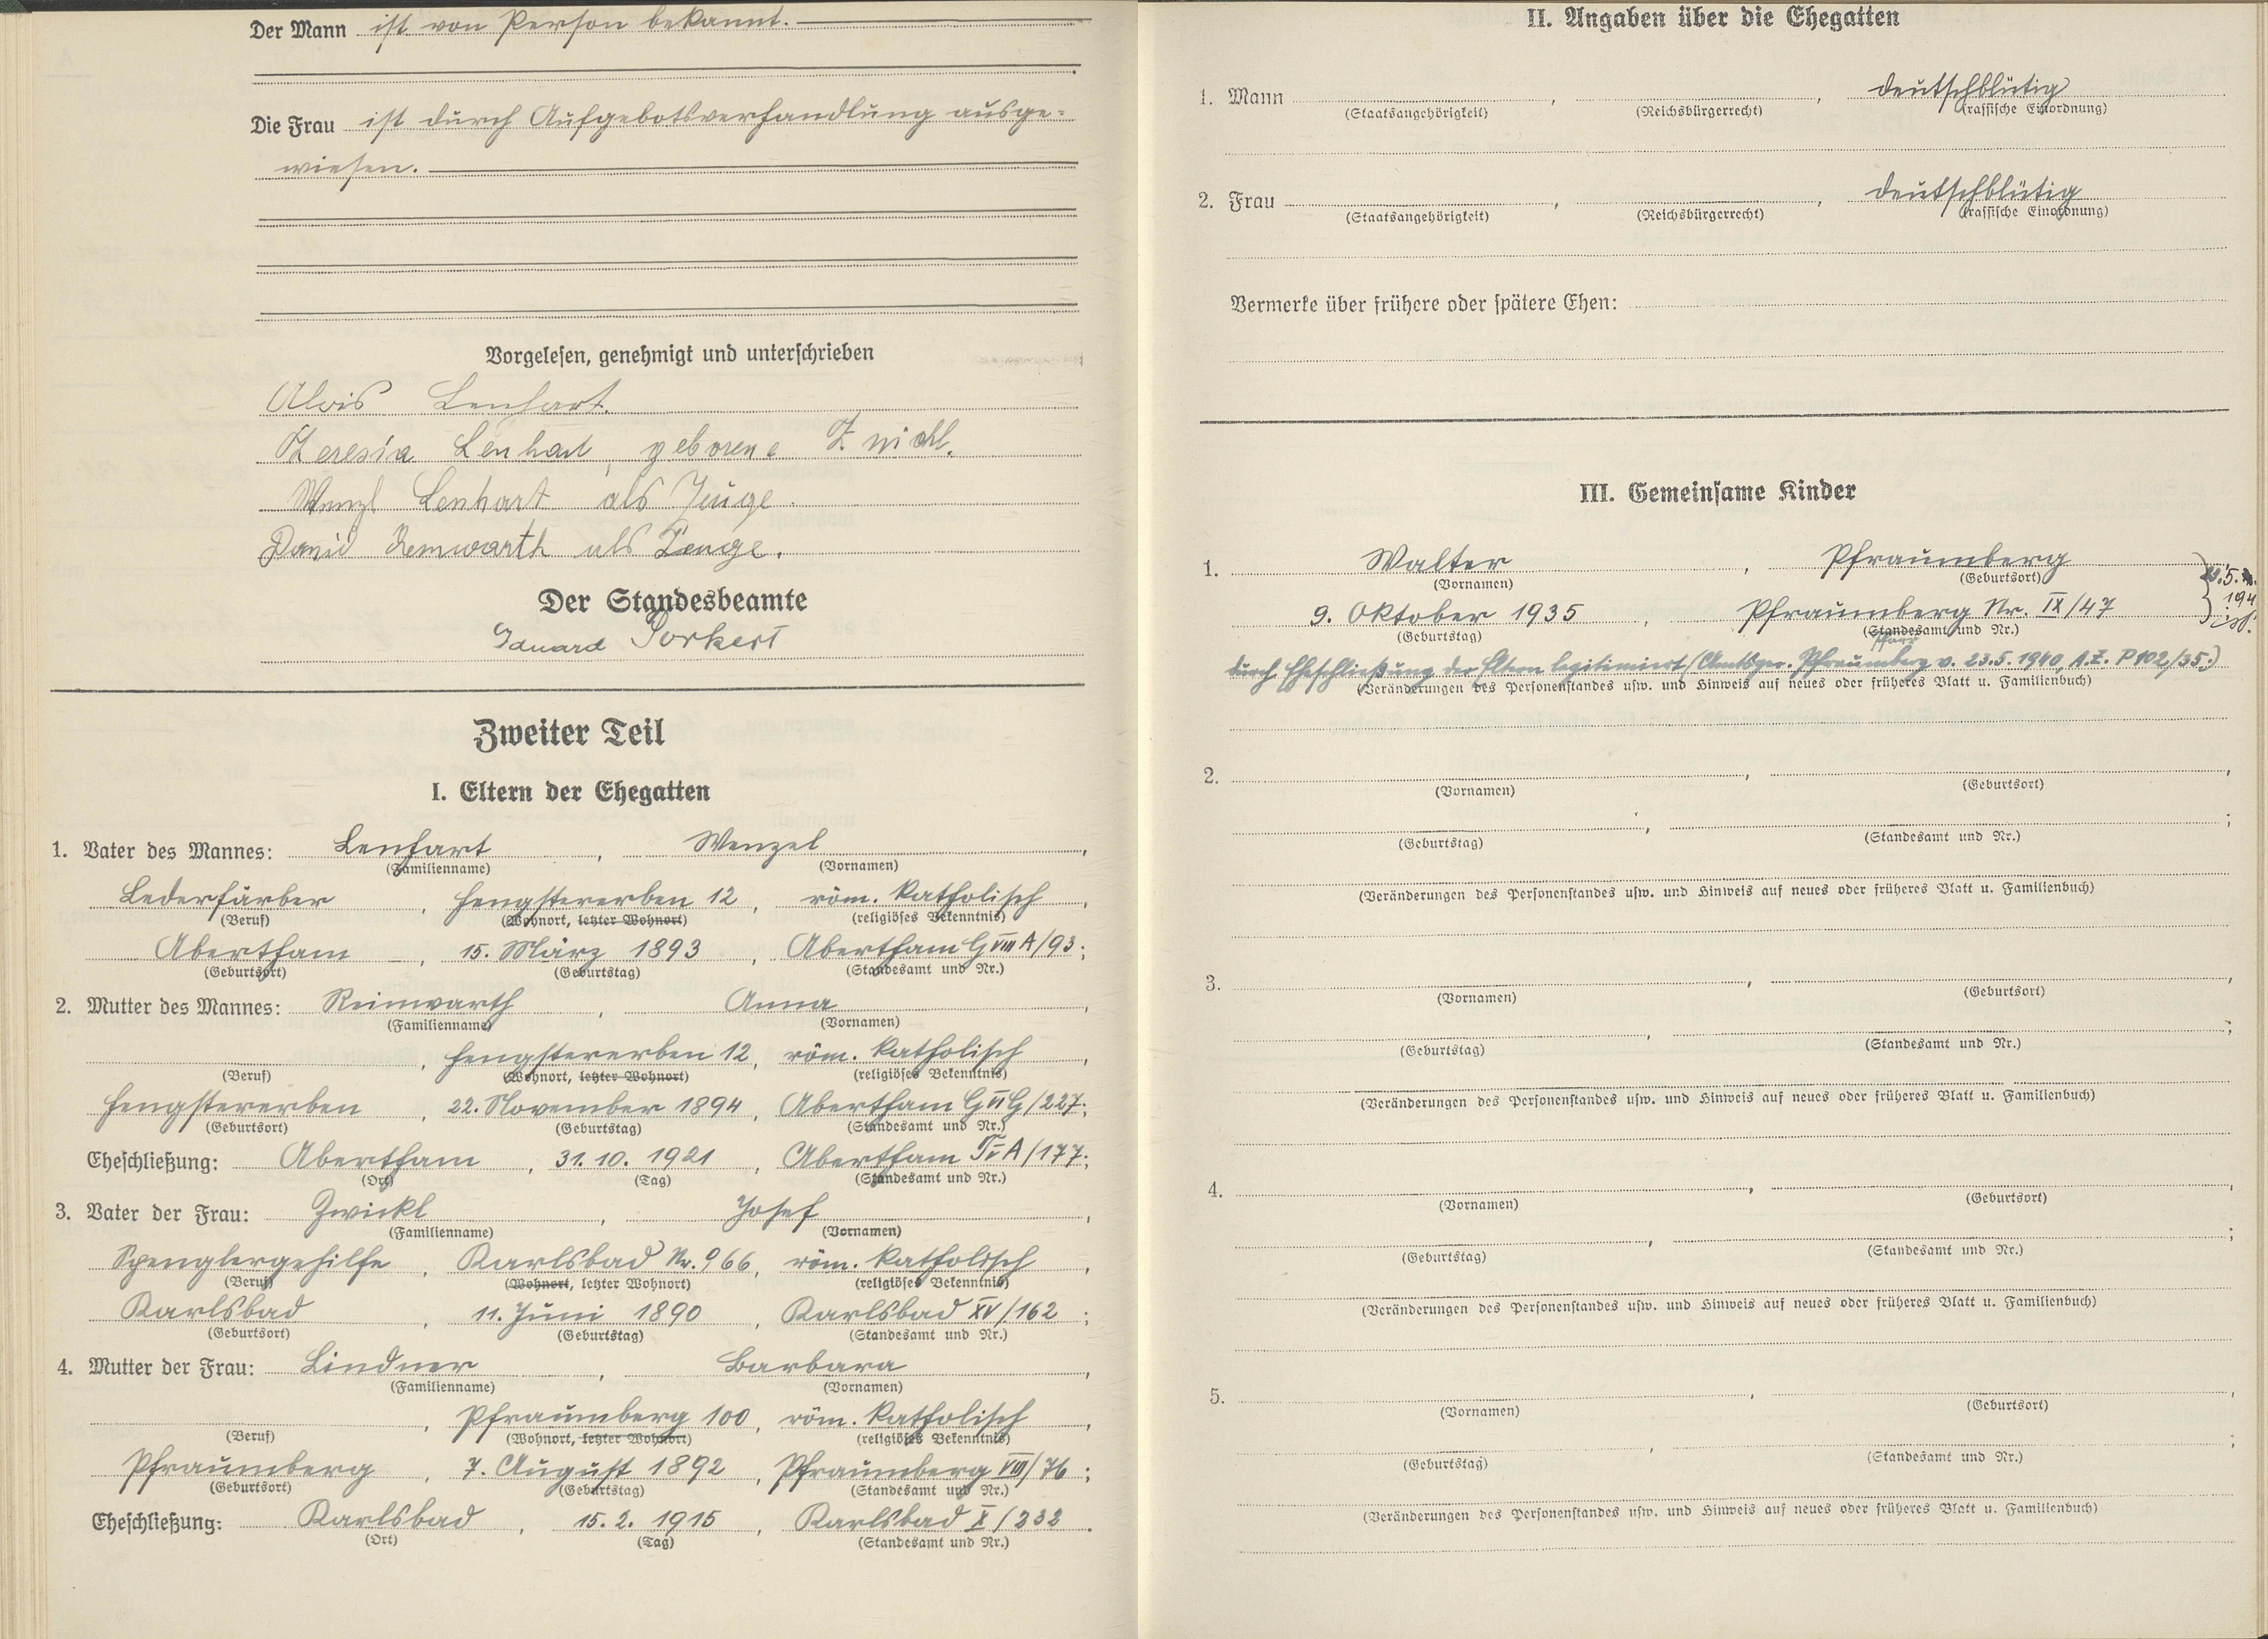 Der Mann ist von Person bekannt.
Die Frau ist durch Aufgebotsverhandlung ausge=
wiesen.
Vorgelesen, genehmigt und unterschrieben
Alois Lenhart.
Theresia Lenhart, geborene Zwickl.
Wenzl Lenhart als Zeuge.
als Zeuge.
Der Standesbeamte
Eduard
Zweiter Teil
I. Eltern der Ehegatten
1. Vater des Mannes: Lenhart, Wenzel,
(Familienname) (Vornamen)
Lederfärber, Hengstererben 12, röm. katholisch,
(Beruf) (Wohnort, letzter Wohnort) (religiöses Bekenntnis)
Abertham, 15. März 1893, Abertham G VIII A/93;
(Geburtsort) (Geburtstag) (Standesamt und Nr.)
2. Mutter des Mannes: Reinwarth, Anna,
(Familienname) (Vornamen)
, Hengstererben 12, röm. katholisch,
(Beruf) (Wohnort, letzter Wohnort) (religiöses Bekenntnis)
Hengstererben, 22. November 1894, Abertham G VI G/227;
(Geburtsort) (Geburtstag) (Standesamt und Nr.)
Eheschließung: Abertham, 31. 10. 1921, Abertham A/177;
(Ort) (Tag) (Standesamt und Nr.)
3. Vater der Frau: Zwickl, Josef,
(Familienname) (Vornamen)
Spenglergehilfe, Karlsbad Nr. 966, röm. katholisch,
(Beruf) (Wohnort, letzter Wohnort) (religiöses Bekenntnis)
Karlsbad, 11. Juni 1890, Karlsbad XV/162;
(Geburtsort) (Geburtstag) (Standesamt und Nr.)
4. Mutter der Frau: Lindner, Barbara,
(Familienname) (Vornamen)
, Pfraumberg 100, röm. katholisch,
(Beruf) (Wohnort, letzter Wohnort) (religiöses Bekenntnis)
Pfraumberg, 7. August 1892, Pfraumberg VIII/76;
(Geburtsort) (Geburtstag) (Standesamt und Nr.)
Eheschließung: Karlsbad, 15. 2. 1915, Karlsbad X/232.
(Ort) (Tag) (Standesamt und Nr.)
II. Angaben über die Ehegatten
1. Mann , , deutschblütig
(Staatsangehörigkeit) (Reichsbürgerrecht) (rassische Einordnung)
2. Frau , , deutschblütig
(Staatsangehörigkeit) (Reichsbürgerrecht) (rassische Einordnung)
Vermerke über frühere oder spätere Ehen:
III. Gemeinsame Kinder
1. Walter, Pfraumberg
(Vornamen) (Geburtsort)
9. Oktober 1935, Pfraumberg Nr. IX/47
(Geburtstag) (Standesamt und Nr.)
Pfarr
durch Eheschließung der Eltern legitimiert (Amtsger. Pfraumberg v. 23.5.1940, A.Z. P 102/35.)
(Veränderungen des Personenstandes usw. und Hinweis auf neues oder früheres Blatt u. Familienbuch)
2. , ,
(Vornamen) (Geburtsort)
, ;
(Geburtstag) (Standesamt und Nr.)
(Veränderungen des Personenstandes usw. und Hinweis auf neues oder früheres Blatt u. Familienbuch)
3. , ,
(Vornamen) (Geburtsort)
, ;
(Geburtstag) (Standesamt und Nr.)
(Veränderungen des Personenstandes usw. und Hinweis auf neues oder früheres Blatt u. Familienbuch)
4. , ,
(Vornamen) (Geburtsort)
, ;
(Geburtstag) (Standesamt und Nr.)
(Veränderungen des Personenstandes usw. und Hinweis auf neues oder früheres Blatt u. Familienbuch)
5. , ,
(Vornamen) (Geburtsort)
, ;
(Geburtstag) (Standesamt und Nr.)
(Veränderungen des Personenstandes usw. und Hinweis auf neues oder früheres Blatt u. Familienbuch)